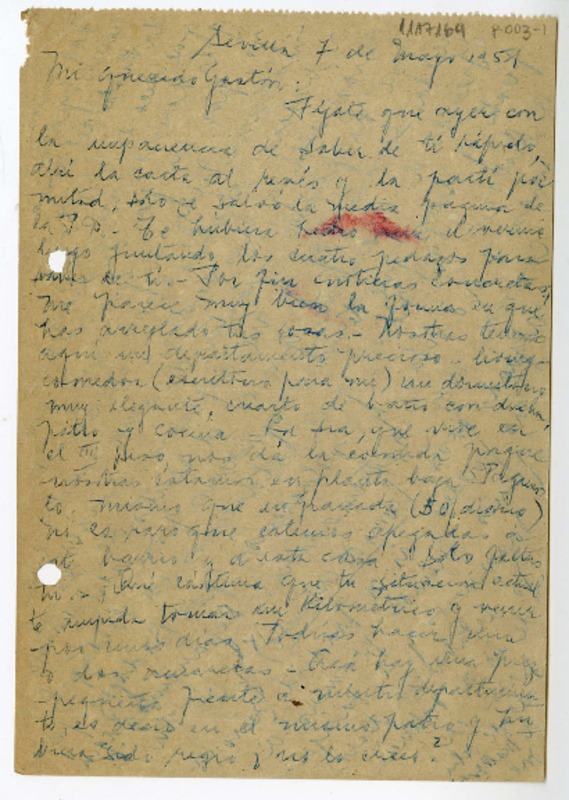 11A7169 P003-1
Sevilla 7 de Mayo 1951
Mi querido Gastón:
Fíjate que ayer con
la impaciencia de saber de tí rápido,
abrí la carta al revés y la partí por
mitad, sólo se salvó la media página de
la Te hubiera el
luego juntando los cuatro pedazos para
saber de tí.- Por fin noticias concretas!
me parece muy bien la forma en que
has arreglado tus cosas.- Nosotros tenemos
aquí un departamento precioso. living-
comedor (escritorio para mí) un dormitorio
muy elegante, cuarto de baño con ducha,
patio y cocina - La que vive en
el III piso nos dá la comida porque
nosotros estamos en planta baja.
mismo que en Granada (50 diario)
es estemos apegados a
este barrio y a esta casa. Sólo faltas
tú.- Qué lástima que tu situación actual
te impida tomar un Kilométrico y venir
por unos días. Podrías hacer una
o dos hay una
pequeña frente a nuestro departamen
to, es decir en el mismo patio y hu
biera sido regio ¿no lo crees?